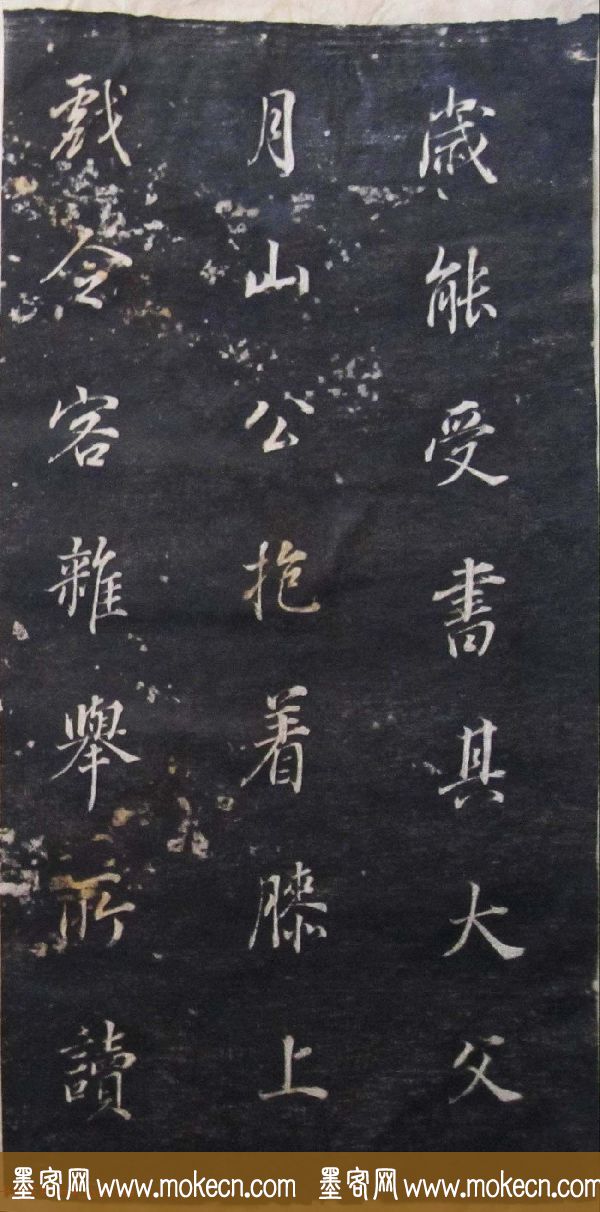 歲能受書其大父
月山公抱着膝上
戲令客雜舉所讀
墨客网 www.mokecn.com 墨客网 www.mokecn.com